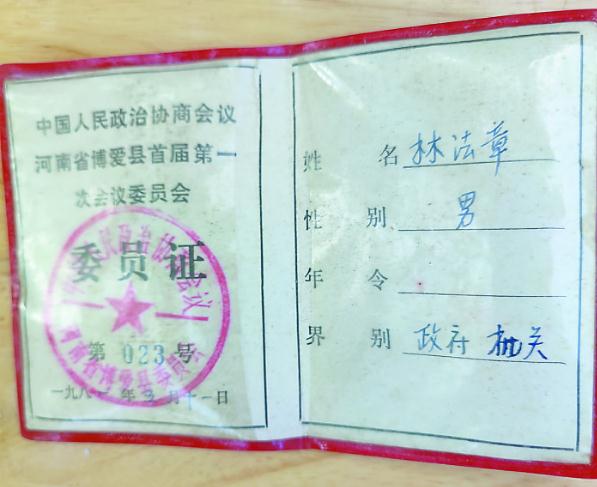 中国人民政治协商会议
河南省博爱县首届第一
次会议委员会
委员证
第 023 号
一九八一年3月十一日
姓 名 林法章
性 别 男
年 令
界 别 政府 机关